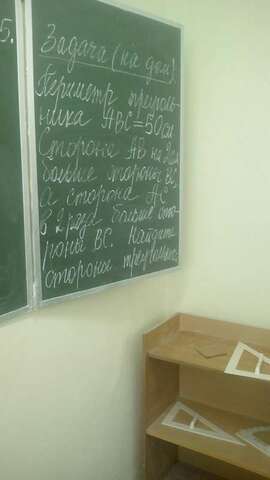 5.
Задача (на дом).
Периметр треуголь-
ника ABC = 50 см
Сторона AB на 2 см
больше стороны BC,
а сторона AC
в 2 раза больше сто-
роны BC. Найдите
стороны треугольника.